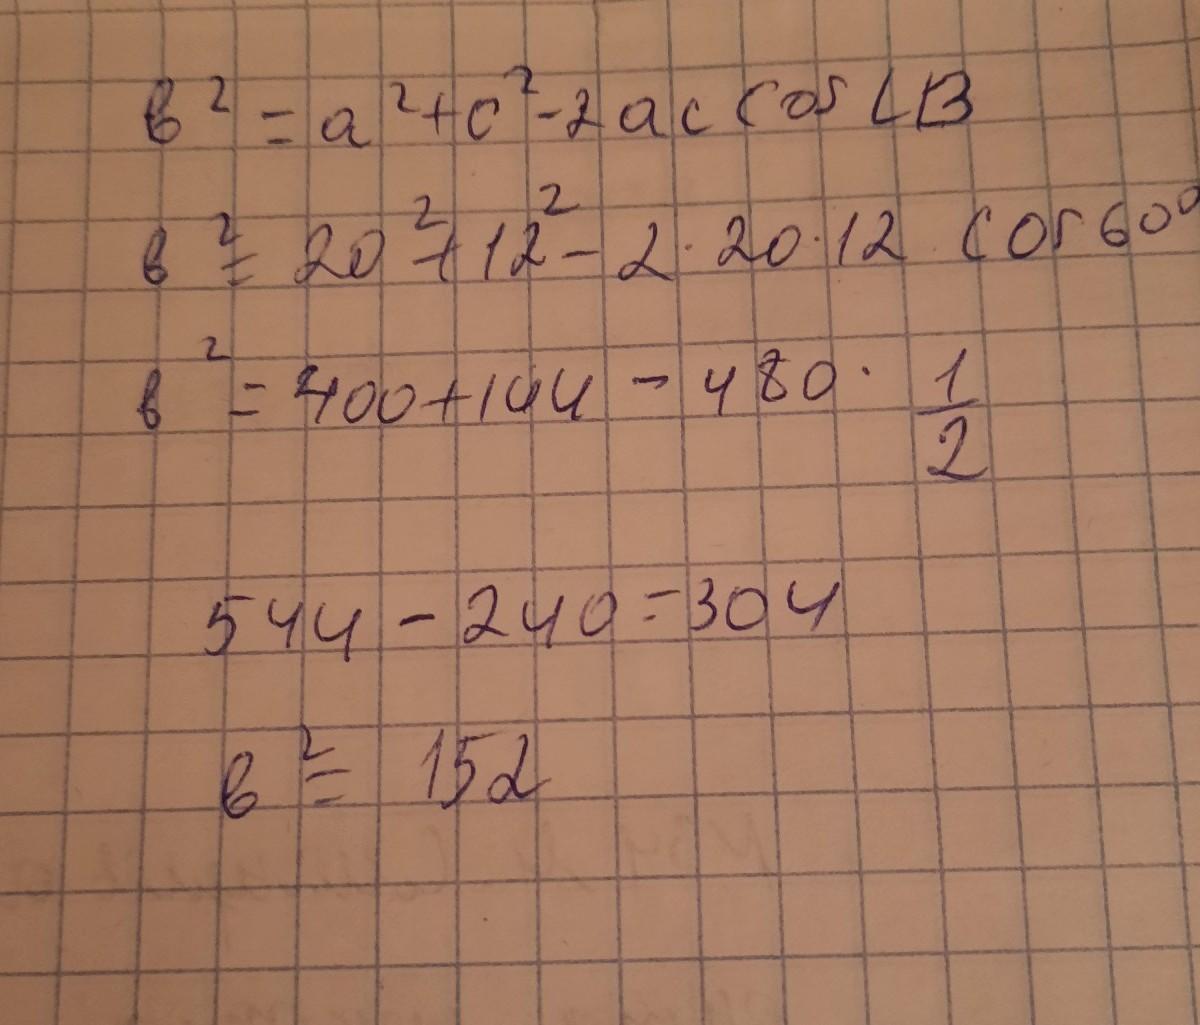 в² = a² + c² - 2 a c cos ∠B
в² = 20² + 12² - 2 · 20 · 12 · cos 60°
в² = 400 + 144 - 480 · 1/2
544 - 240 = 304
в² = 152